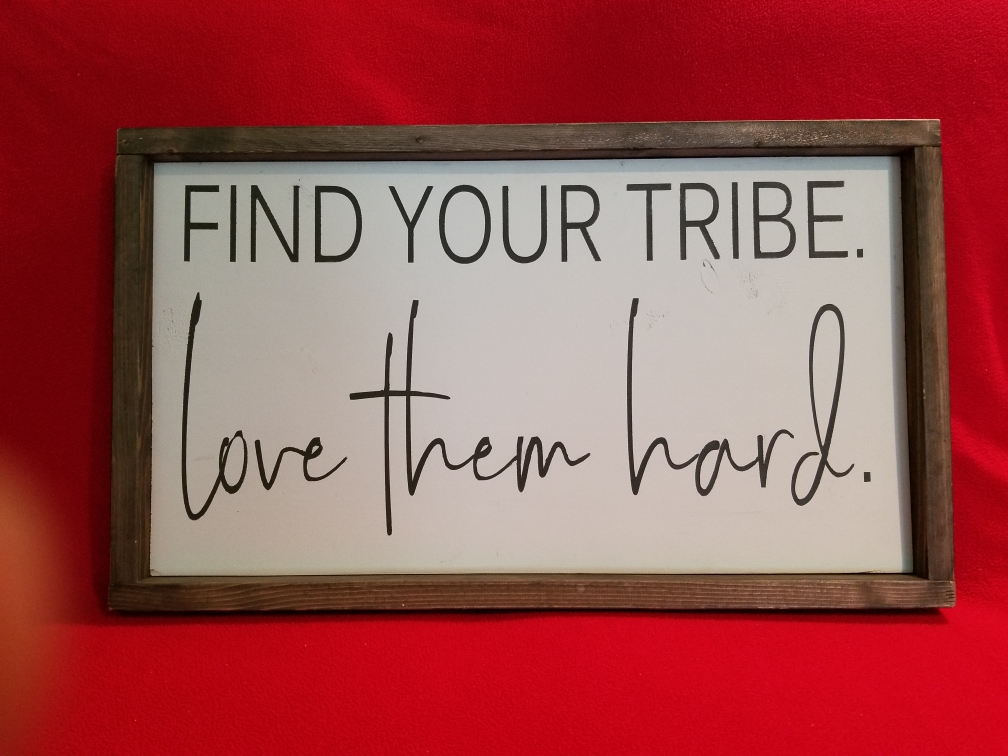 FIND YOUR TRIBE.
love them hard.